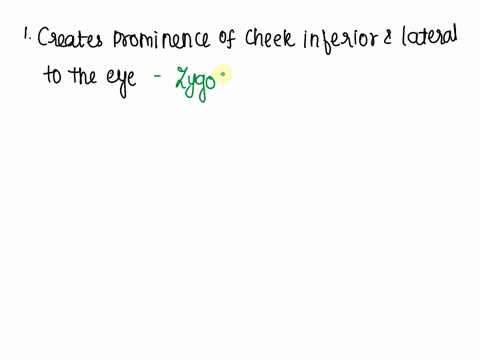 1. Creates prominence of cheek inferior & lateral
to the eye - Zygo